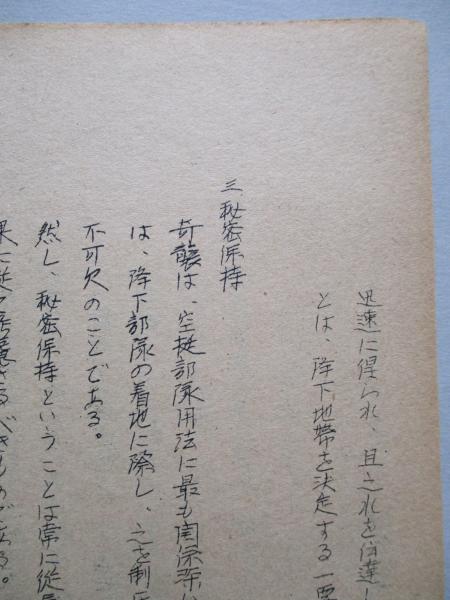 迅速に得られ、且之れを伝達し
とは、降下地帯を決定する一要
三 秘密保持
奇襲は、空挺部隊用法に最も関係深い
は、降下部隊の着地に際し、之を制圧
不可欠のことである。
然し、秘密保持ということは常に従属
果に従つて考慮さるべきものである。